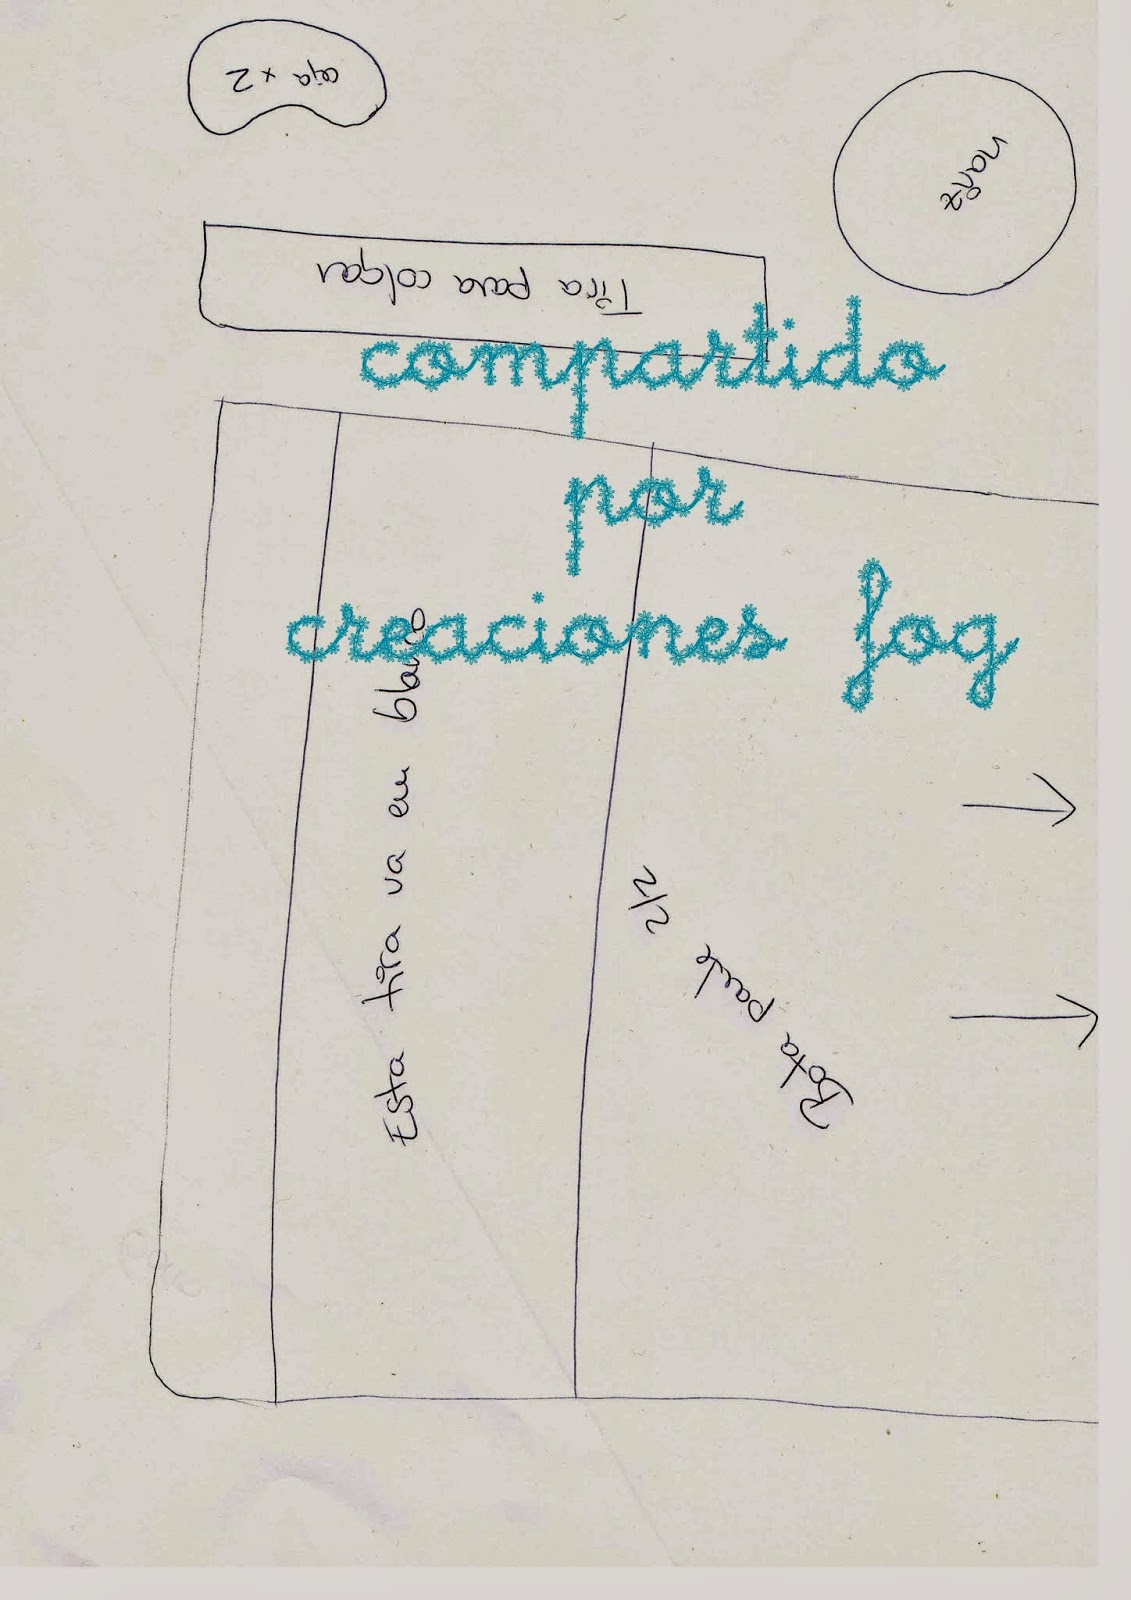 ceja x 2
nariz
Tira para colgar
compartido
por
creaciones fog
Esta tira va en blanco
Bota parte 2/2